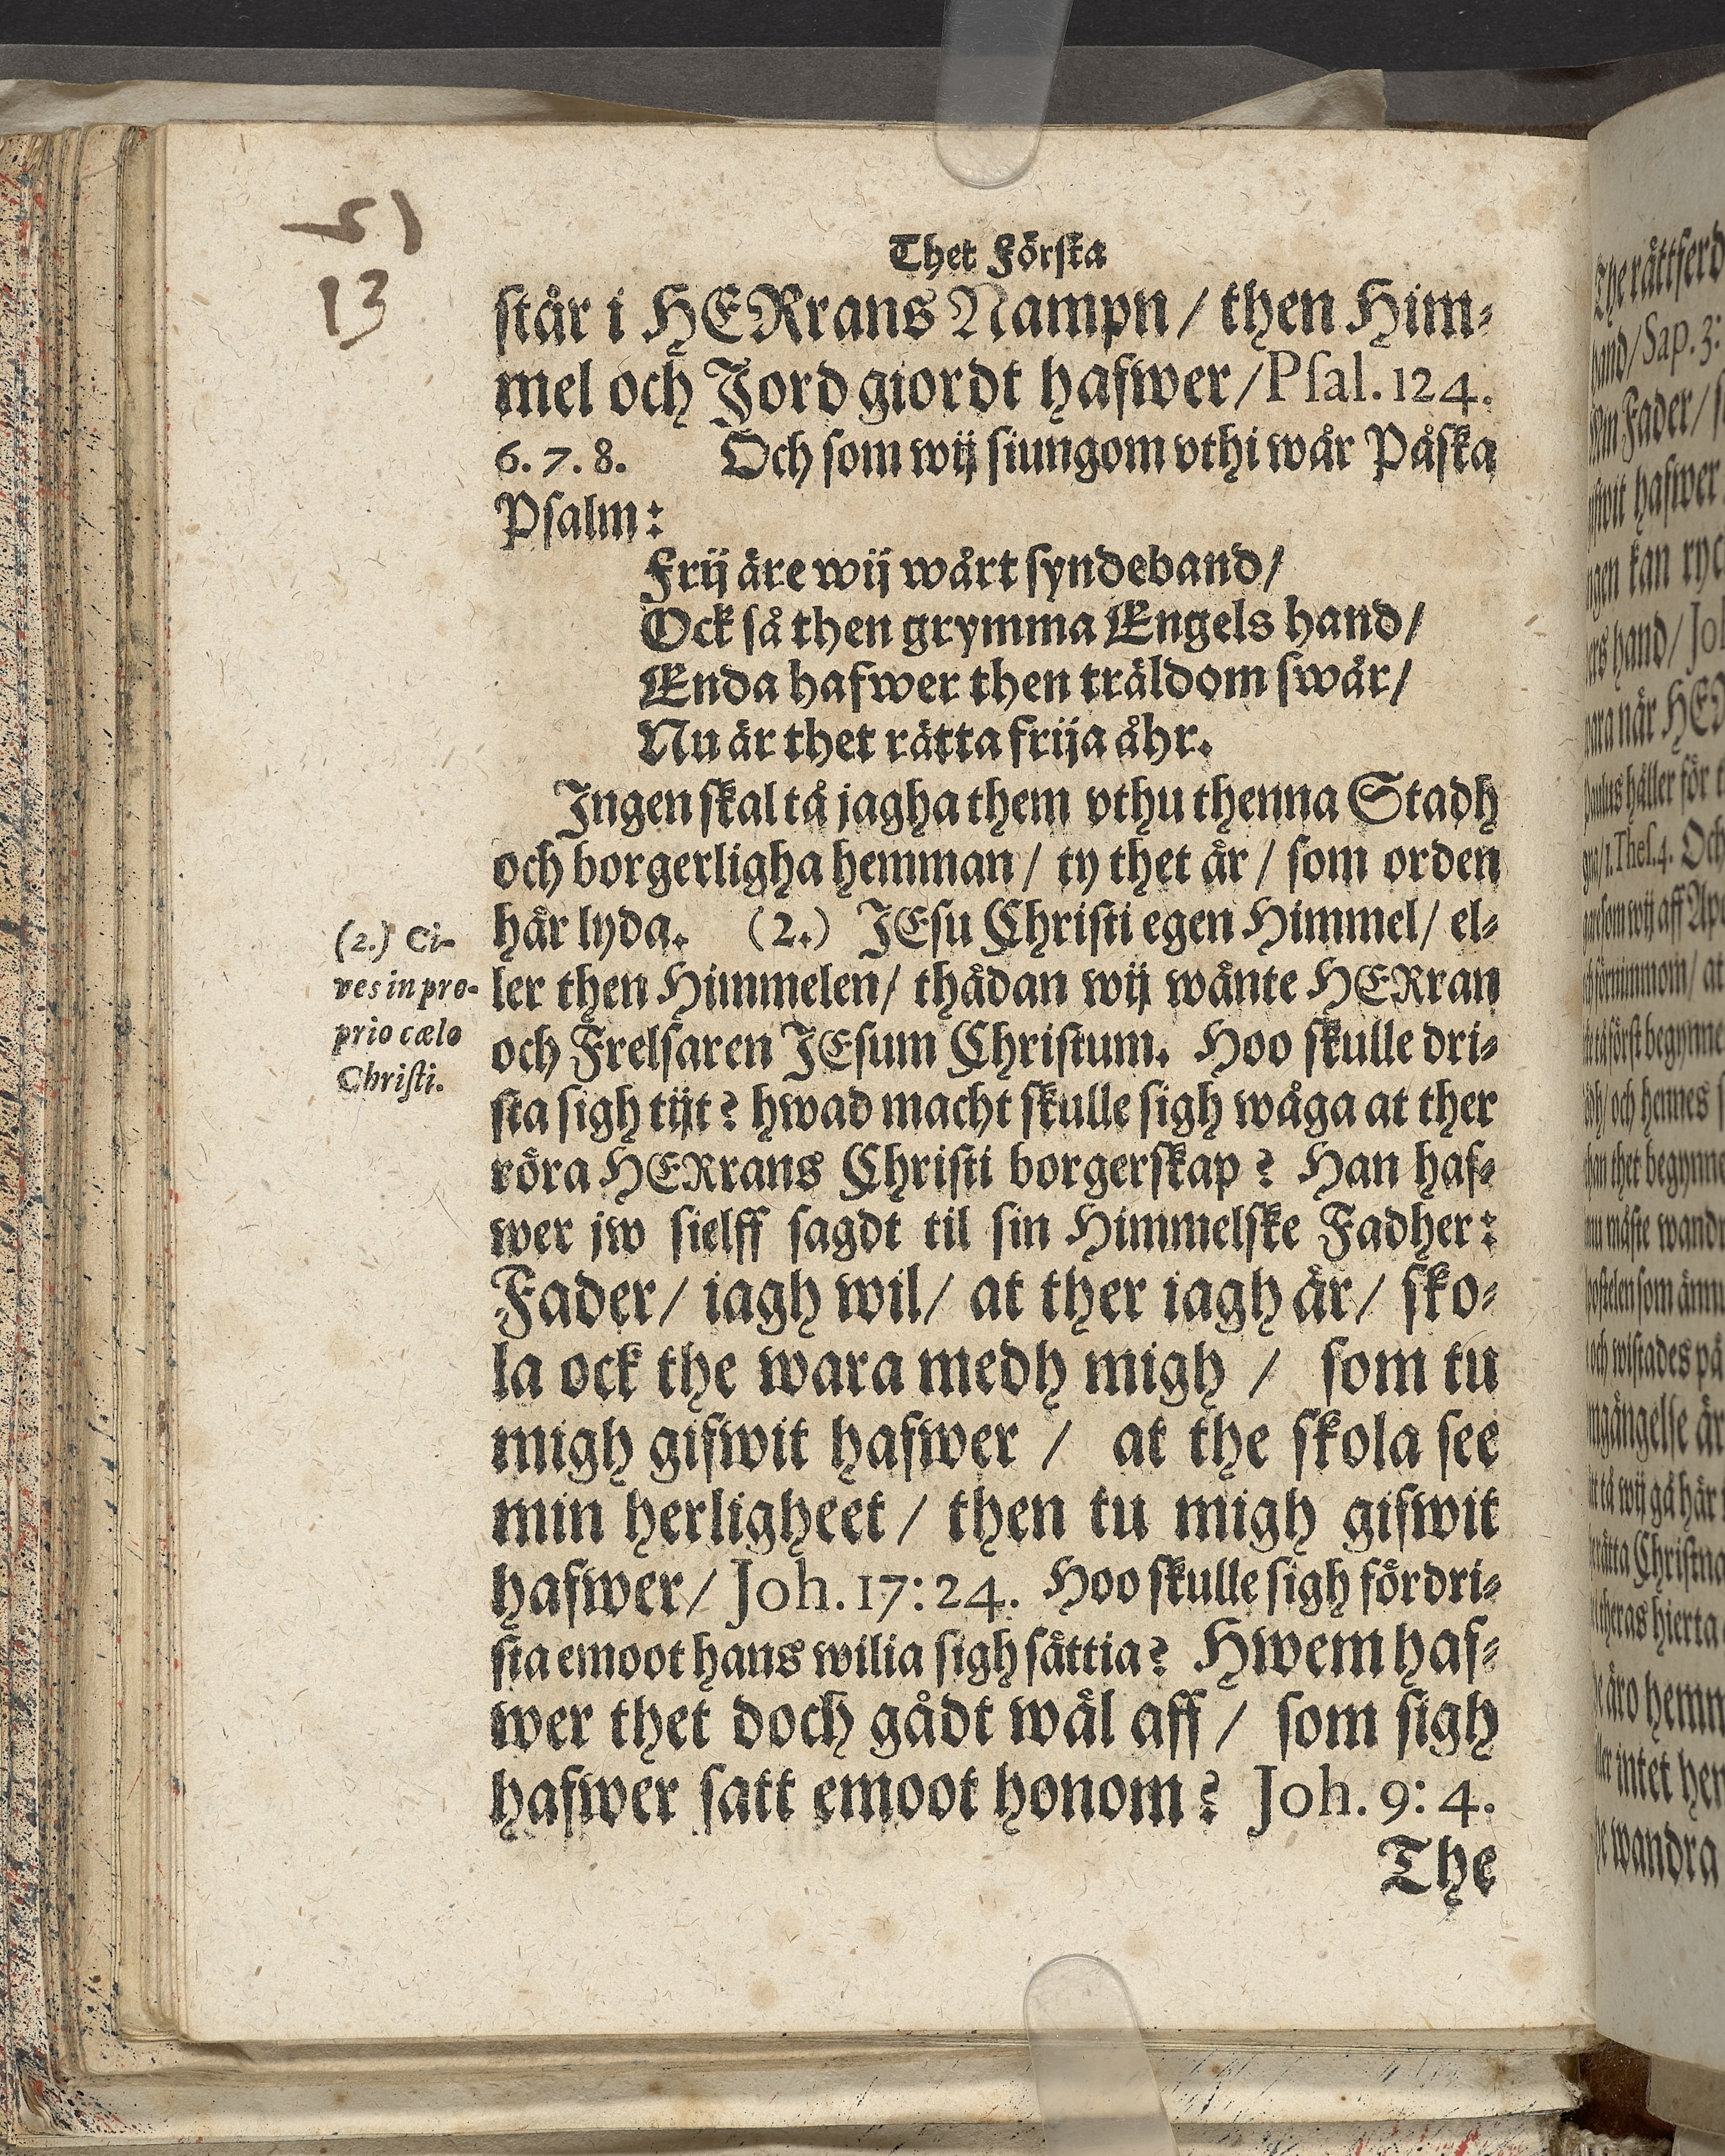 5)
13
Thet Första
står i HERrans Nampn / then Him-
mel och Jord giordt hafwer / Psal. 124.
6. 7. 8. Och som wij siungom vthi wår Påska
Psalm:
Frij äre wij wårt syndeband /
Ock så then grymma Engels hand /
Enda hafwer then träldom swår /
Nu är thet rätta frija åhr.
Ingen skal tå jagha them vthu thenna Stadh
och borgerligha hemman / ty thet är / som orden
(2.) Ci-
ves in pro-
prio cælo
Christi.
här lyda. (2.) JEsu Christi egen Himmel / el-
ler then Himmelen / thädan wij wänte HERran
och Frelsaren JEsum Christum. Hoo skulle dri-
sta sigh tijt? hwad macht skulle sigh wåga at ther
röra HERrans Christi borgerskap? Han haf-
wer jw sielff sagdt til sin Himmelske Fadher:
Fader / iagh wil / at ther iagh är / sko-
la ock the wara medh migh / som tu
migh gifwit hafwer / at the skola see
min herligheet / then tu migh gifwit
hafwer / Joh. 17: 24. Hoo skulle sigh fördri-
sta emoot hans wilia sigh sättia? Hwem haf-
wer thet doch gådt wäl aff / som sigh
hafwer satt emoot honom? Joh. 9: 4.
The